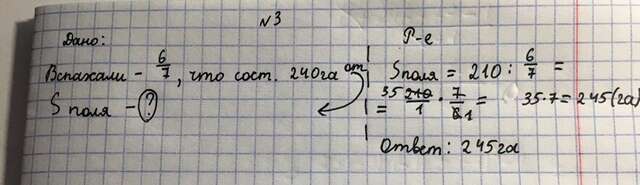 №3
Дано:
Вспахали - 6/7, что сост. 240га от
S поля - ?
Р-е
S поля = 210 : 6/7 =
= 35 210/1 · 7/6 1 = 35·7 = 245 (га)
Ответ: 245га